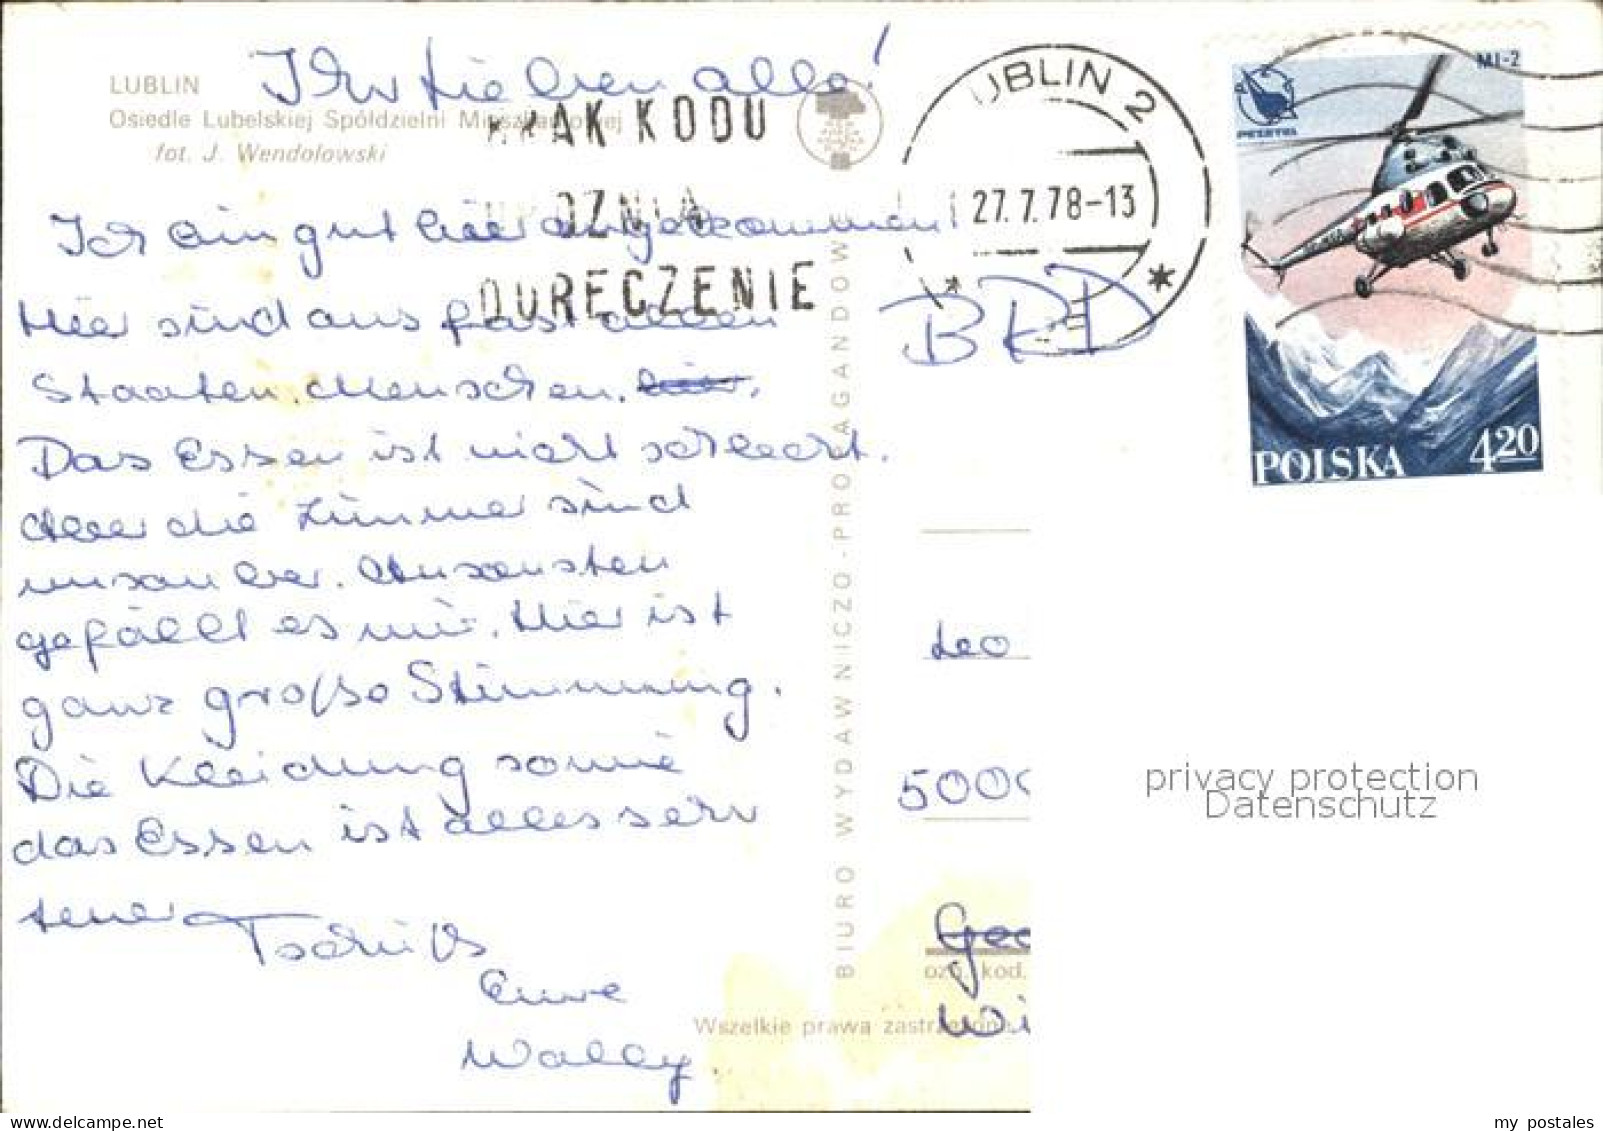 Ihr Lieben alle!
LUBLIN
Osiedle Lubelskiej Spółdzielni Mieszkaniowej
fot. J. Wendołowski
BRAK KODU
OPÓŹNIA
DORĘCZENIE
LUBLIN 2
27.7.78-13
MI-2
PESETEL
POLSKA 4.20
Ich bin gut hier angekommen
Hier sind aus fast allen
Staaten Menschen. hier.
Das Essen ist nicht schlecht.
Aber die Zimmer sind
unsauber. Ansonsten
gefällt es mir. Hier ist
ganz große Stimmung.
Die Kleidung sowie
das Essen ist alles sehr
teuer
Tschüß
Eure
Wally
BRD
Leo
5000
ozn. kod.
Wi
BIURO WYDAWNICZO-PROPAGANDOW
Wszelkie prawa zastrzeżone
privacy protection
Datenschutz
my postales